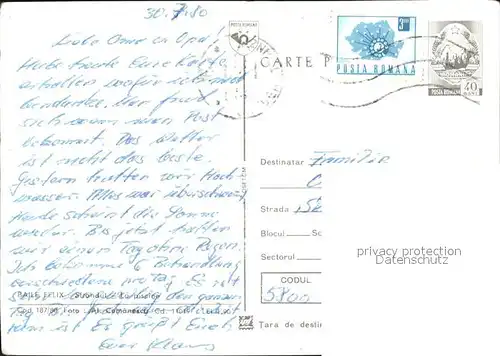 30.7.80
Liebe Oma u. Opa!
Habe heute Eure Karte
erhalten wofür ich mich
bedanke. Man freut
sich wenn man Post
bekommt. Das Wetter
ist nicht das beste.
Gestern hatten wir Hoch-
wasser. Alles war überschwemmt
Heute scheint die Sonne
wieder. Bis jetzt hatten
wir einen Tag ohne Regen.
Ich bekomme 6 Behandlungen
verschiedene pro Tag. Es ist
BAILE FELIX
den ganzen
Cod. 187/ Foto Al. Comanescu
ist Es grüßt Euch
Euer Klaus
POSTA ROMANA
CARTE P
POSTA ROMANA
POSTA ROMANA 40
Destinatar Familie
Strada
Blocul Sc
Sectorul
CODUL
5800
Țara de destin
privacy protection
Datenschutz